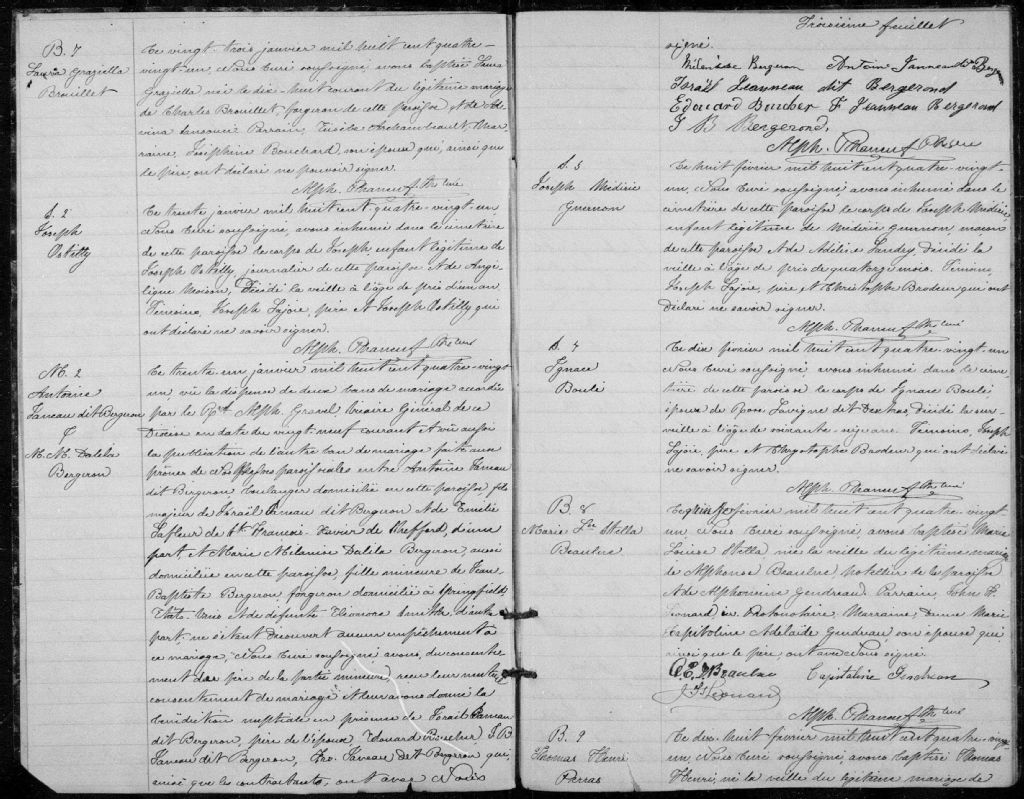 B. 7
Laura Graziella
Brouillet
Le vingt-trois janvier mil huit cent quatre-
vingt-un, Nous Curé soussigné, avons baptisé Laura
Graziella née le dix-huit courant du légitime mariage
de Charles Brouillet, forgeron de cette paroisse et de
Parrain, Eusèbe Archambeault, Mar-
raine, Joséphine Bouchard, son épouse qui, ainsi que
le père, ont déclaré ne pouvoir signer.
Alph. Phaneuf Ptre Curé
S. 2
Joseph
Le trente janvier mil huit cent quatre-vingt-un
Nous Curé soussigné, avons inhumé dans le cimetière
de cette paroisse le corps de Joseph, enfant légitime de
Joseph journalier de cette paroisse et de Angé-
lique Moison, Décédé la veille à l'âge de près d'un an.
Témoins, Joseph Lajoie, père et Joseph qui
ont déclaré ne savoir signer.
Alph. Phaneuf Ptre Curé
M. 2
Antoine
Janeau dit Bergeron
&
M. M. Dalila
Bergeron
Le trente un janvier mil huit cent quatre-vingt
un, vu la dispense de deux bans de mariage accordée
par le Rvd Alph. Gravel Vicaire Général de ce
Diocèse en date du vingt-neuf courant et vu aussi
la publication de l'autre ban de mariage faite aux
prônes de nos Messes paroissiales entre Antoine Janeau
dit Bergeron boulanger domicilié en cette paroisse fils
majeur de Israël Janeau dit Bergeron et de Emilie
Lafleur de St. François Xavier de Shefford, d'une
part, et Marie Mélenise Dalila Bergeron, aussi
domiciliée en cette paroisse, fille mineure de Jean
Baptiste Bergeron forgeron domicilié à Springfield
Etats-Unis et de défunte Eléonore d'autre
part, ne s'étant découvert aucun empêchement à
ce mariage, Nous Curé soussigné avons, du consente-
ment du père de la partie mineure, reçu leur mutuel
consentement de mariage et leur avons donné la
bénédiction nuptiale en présence de Israël Janeau
dit Bergeron, père de l'époux, Edouard Boucher J. B.
Janeau dit Bergeron, Fro. Janeau dit Bergeron qui,
ainsi que les contractants, ont avec Nous
Troisième feuillet
signé.
Antoin Janneau dit
Israël Jeanneau dit Bergerond
Edouard Boucher F Jeanneau Bergerond
J B Bergerond,
Alph. Phaneuf Ptre Curé
S. 3
Joseph Médéric
Guernon
Le huit février mil huit cent quatre-vingt-
un, Nous Curé soussigné avons inhumé dans le
cimetière de cette paroisse le corps de Joseph Médéric,
enfant légitime de Médéric Guernon, maçon
de cette paroisse et de Adéline Landry, Décédé la
veille à l'âge de près de quatorze mois. Témoins,
Joseph Lajoie, père et Christophe Brodeur qui ont
déclaré ne savoir signer.
Alph. Phaneuf Ptre Curé
Ignace
Boulé
Le dix février mil huit cent quatre-vingt-
un Nous Curé soussigné, avons inhumé dans le cime-
tière de cette paroisse le corps de Ignace Boulé
époux de Rose Lavigne dit décédé la sur-
veille à l'âge de soixante- ans. Témoins, Joseph
Lajoie, père et Chrystophe Brodeur qui ont déclaré
ne savoir signer.
Alph. Phaneuf Ptre Curé
B. 8
Marie Lse Stella
Beaulne
Le quinze février mil huit cent quatre-vingt
un Nous Curé soussigné, avons baptisé Marie
Louise Stella née la veille du légitime mariage
de Alphonse Beaulne, hôtellier de la paroisse
et de Alphonsine Gendreau. Parrain, John F.
Léonard Marraine, dame Marie
Capitoline Adelaïde Gendreau, son épouse qui,
ainsi que le père, ont avec Nous signé.
Beaulne Capitoline Gendreau
J F Léonard
Alph. Phaneuf Ptre Curé
B. 9
Thomas Henri
Parras
Le dix-huit février mil huit cent quatre-vingt-
un, Nous Curé soussigné, avons baptisé Thomas
Henri, né la veille du légitime mariage de